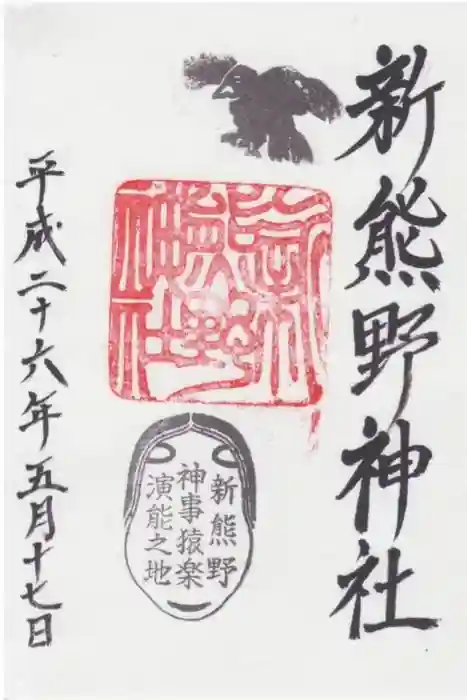 新熊野神社
新熊野神社
新熊野
神事猿楽
演能之地
平成二十六年五月十七日